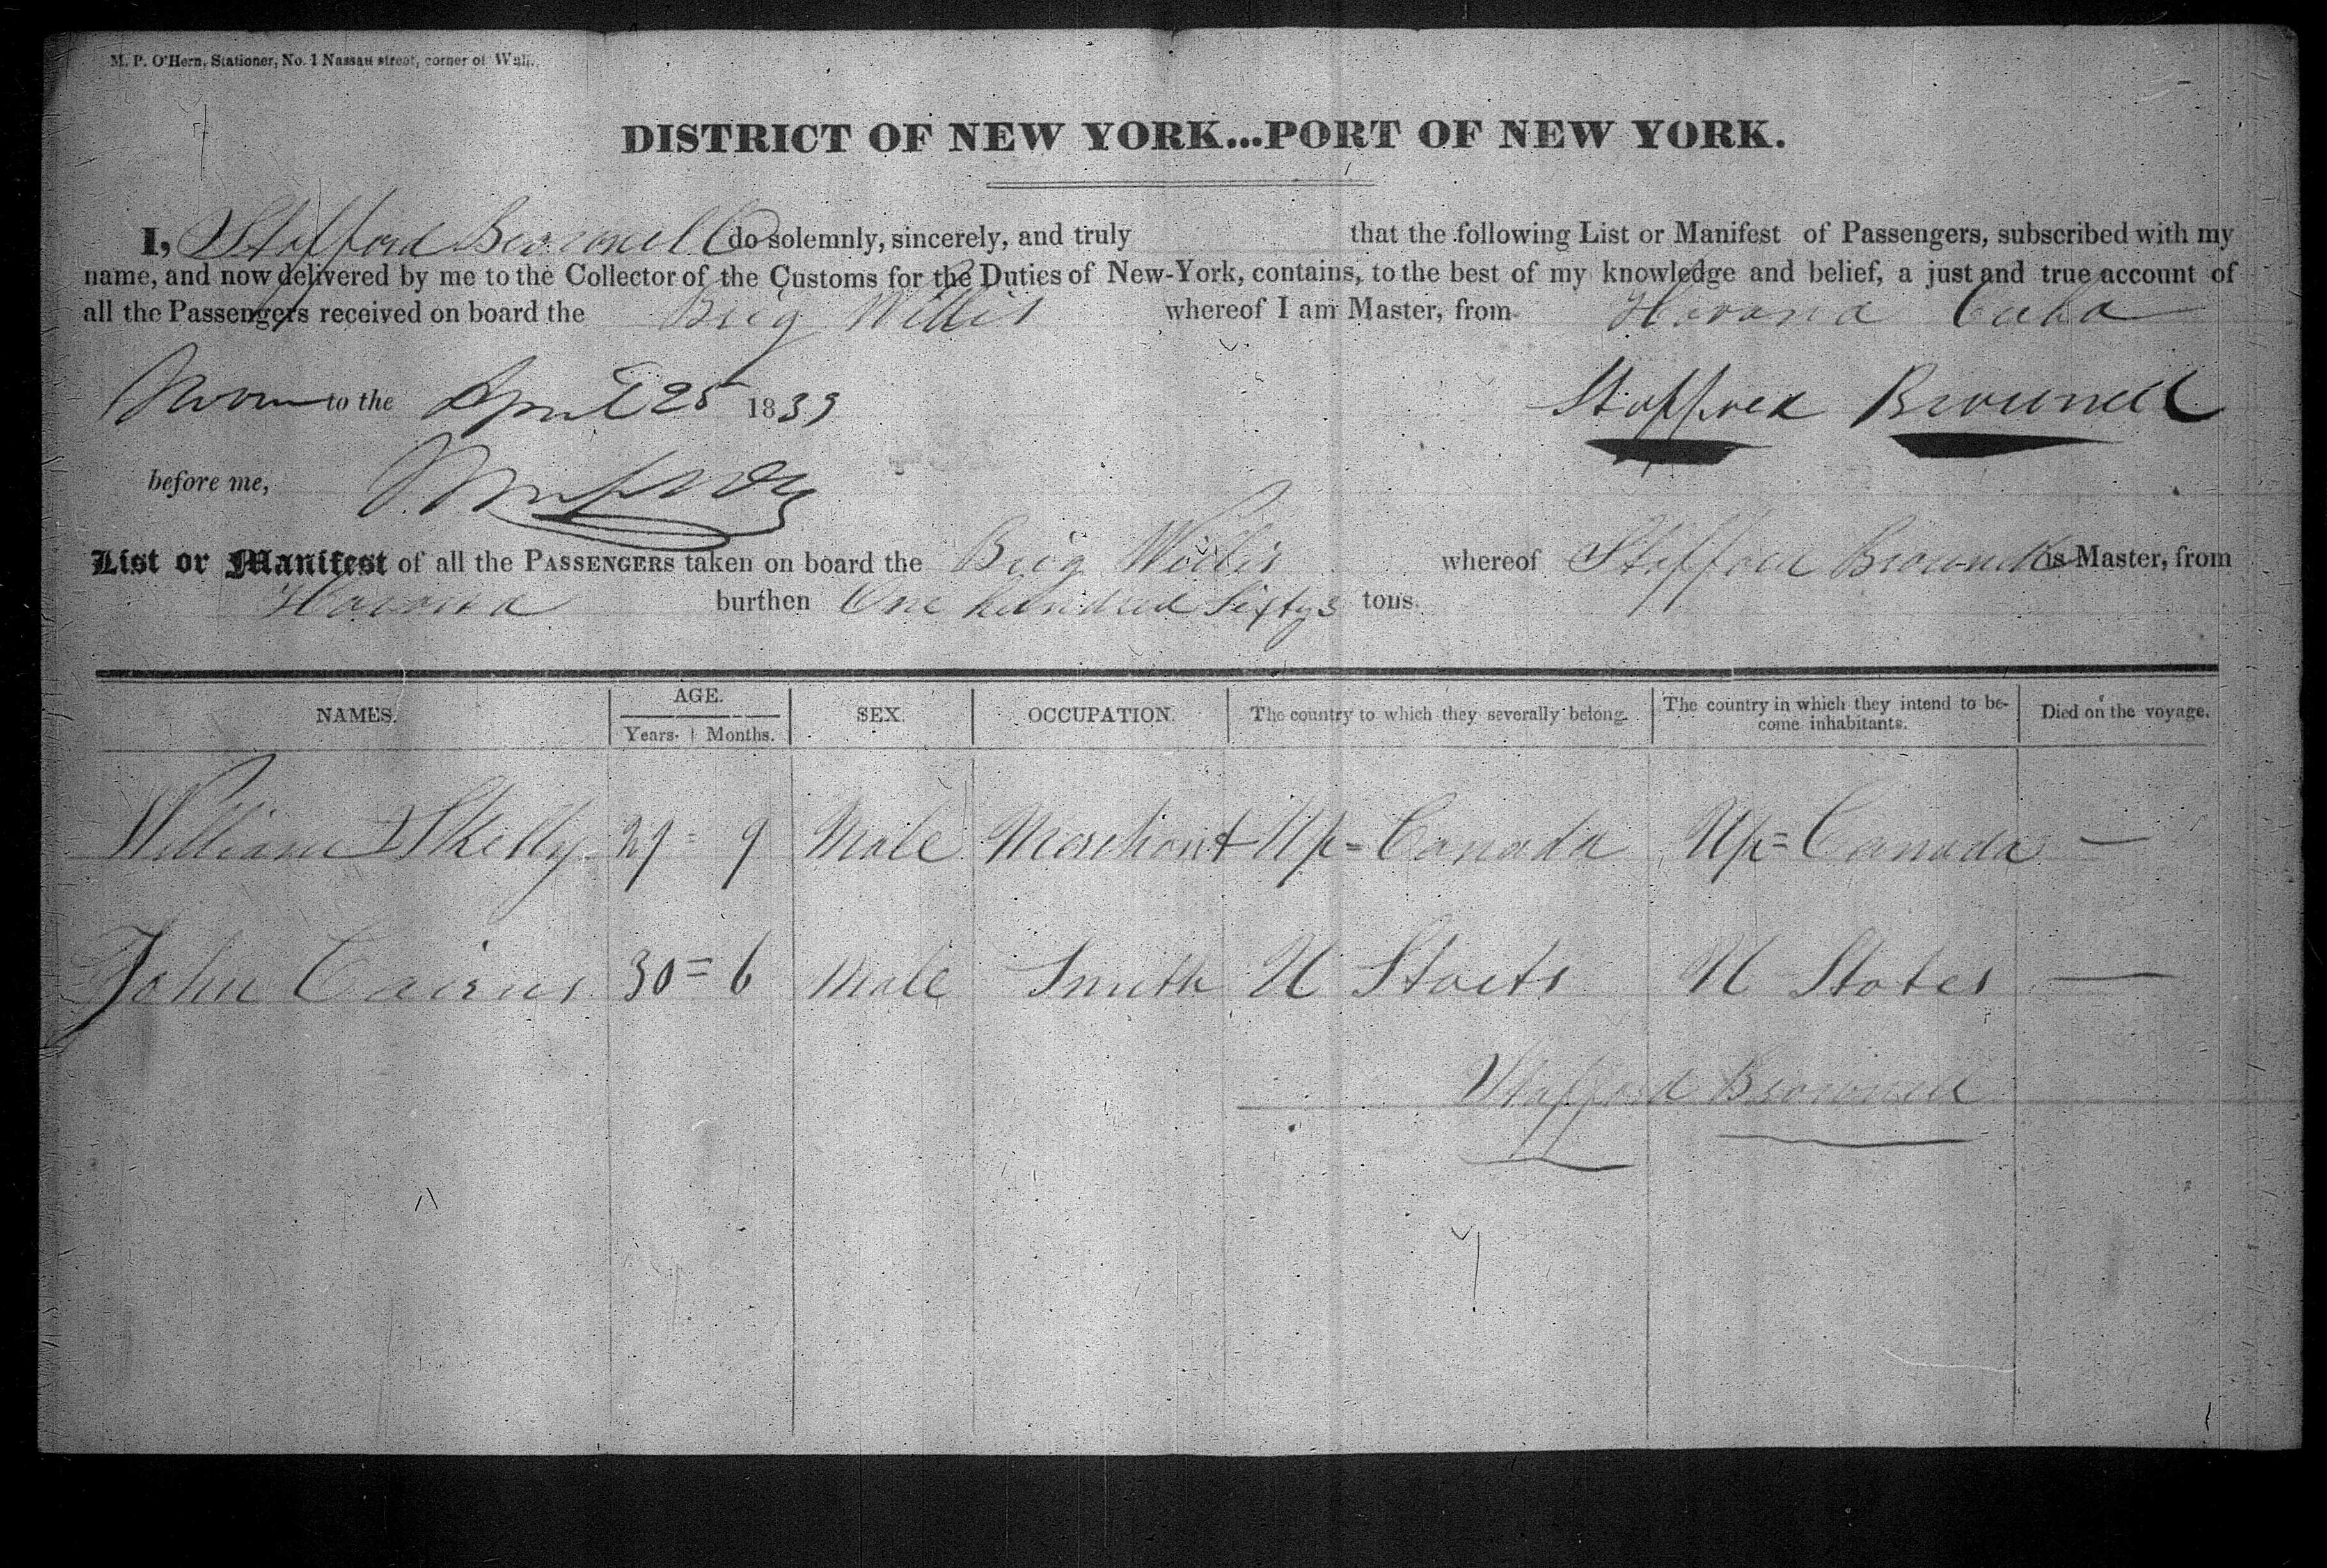 M. P. O'Hern, Stationer, No. 1 Nassau street, corner of Wall.
DISTRICT OF NEW YORK...PORT OF NEW YORK.
I, Stafford Brownell do solemnly, sincerely, and truly that the following List or Manifest of Passengers, subscribed with my
name, and now delivered by me to the Collector of the Customs for the Duties of New-York, contains, to the best of my knowledge and belief, a just and true account of
all the Passengers received on board the Brig Willis whereof I am Master, from Havana Cuba
Sworn to the April 25 1839 Stafford Brownell
before me,
List or Manifest of all the PASSENGERS taken on board the Brig Willis whereof Stafford Brownell is Master, from
Havana burthen One hundred Sixty3 tons.
NAMES. AGE. SEX. OCCUPATION. The country to which they severally belong. The country in which they intend to be- Died on the voyage.
Years. Months. come inhabitants.
William Skelly 29 = 9 Male Merchant Up = Canada Up = Canada —
John Cairns 30 = 6 Male Smith U Staets U States —
Stafford Brownell